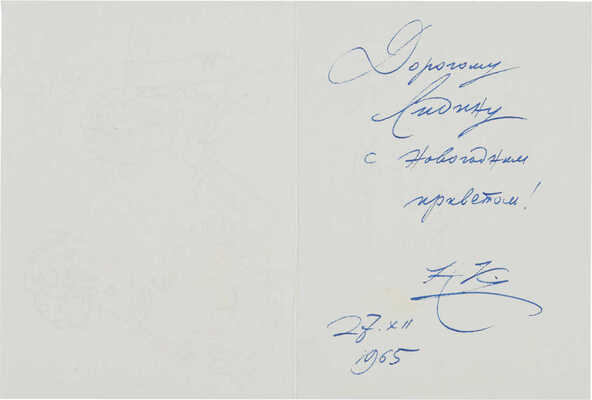 Дорогому
Лидину
с новогодним
приветом!
27.XII
1965